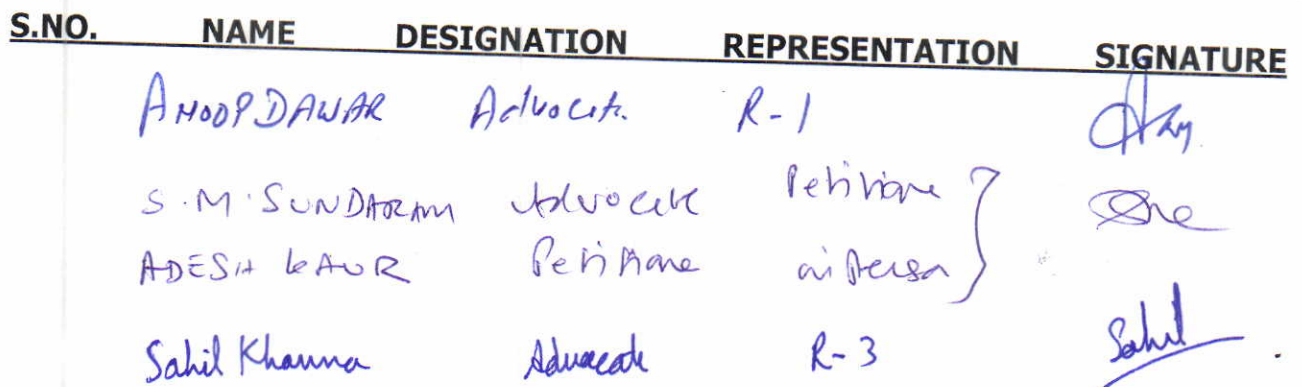 S.NO. NAME DESIGNATION REPRESENTATION SIGNATURE
ANOOP DAWAR Advocate R-1
S.M. SUNDARAM Advocate Petitioner
ADESH KAUR Petitioner in Person
Sahil Khanna Advocate R-3 Sahil